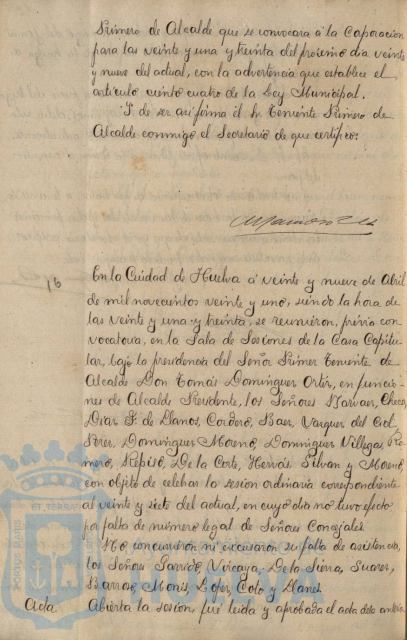 Primero de Alcalde que se convocara á la Corporacion
para las veinte y una y treinta del proximo dia veinte
y nueve del actual, con la advertencia que establece el
artículo ciento cuatro de la Ley Municipal.
Y de ser asi firma el Sr. Teniente Primero de
Alcalde conmigo el Secretario de que certifico:
16
En la Ciudad de Huelva á veinte y nueve de Abril
de mil novecientos veinte y uno, siendo la hora de
las veinte y una y treinta, se reunieron, previa con
vocatoria, en la Sala de Sesiones de la Casa Capitu-
lar, bajo la presidencia del Señor Primer Teniente de
Alcalde Don Tomás Domínguez Ortíz, en funcio-
nes de Alcalde Presidente, los Señores Checa,
Diaz F. de Llanos Cordero, Baez, Vazquez del Cid
Perez, Dominguez Moreno, Dominguez Villegas, Ro-
mero, Repiso, De la Corte, Hervás Silvan y Moreno,
con objeto de celebrar la sesion ordinaria correspondiente
al veinte y siete del actual, en cuyo dia no tuvo efecto
por falta de número legal de Señores Concejales.
No concurrieron ni excusaron su falta de asistencia,
los Señores Garrido, Vizcaya, De la Sierra, Suarez,
Barroso, Monis, Lopez, Coto y
Acta. Abierta la sesion, fué leida y aprobada el acta de la anterior